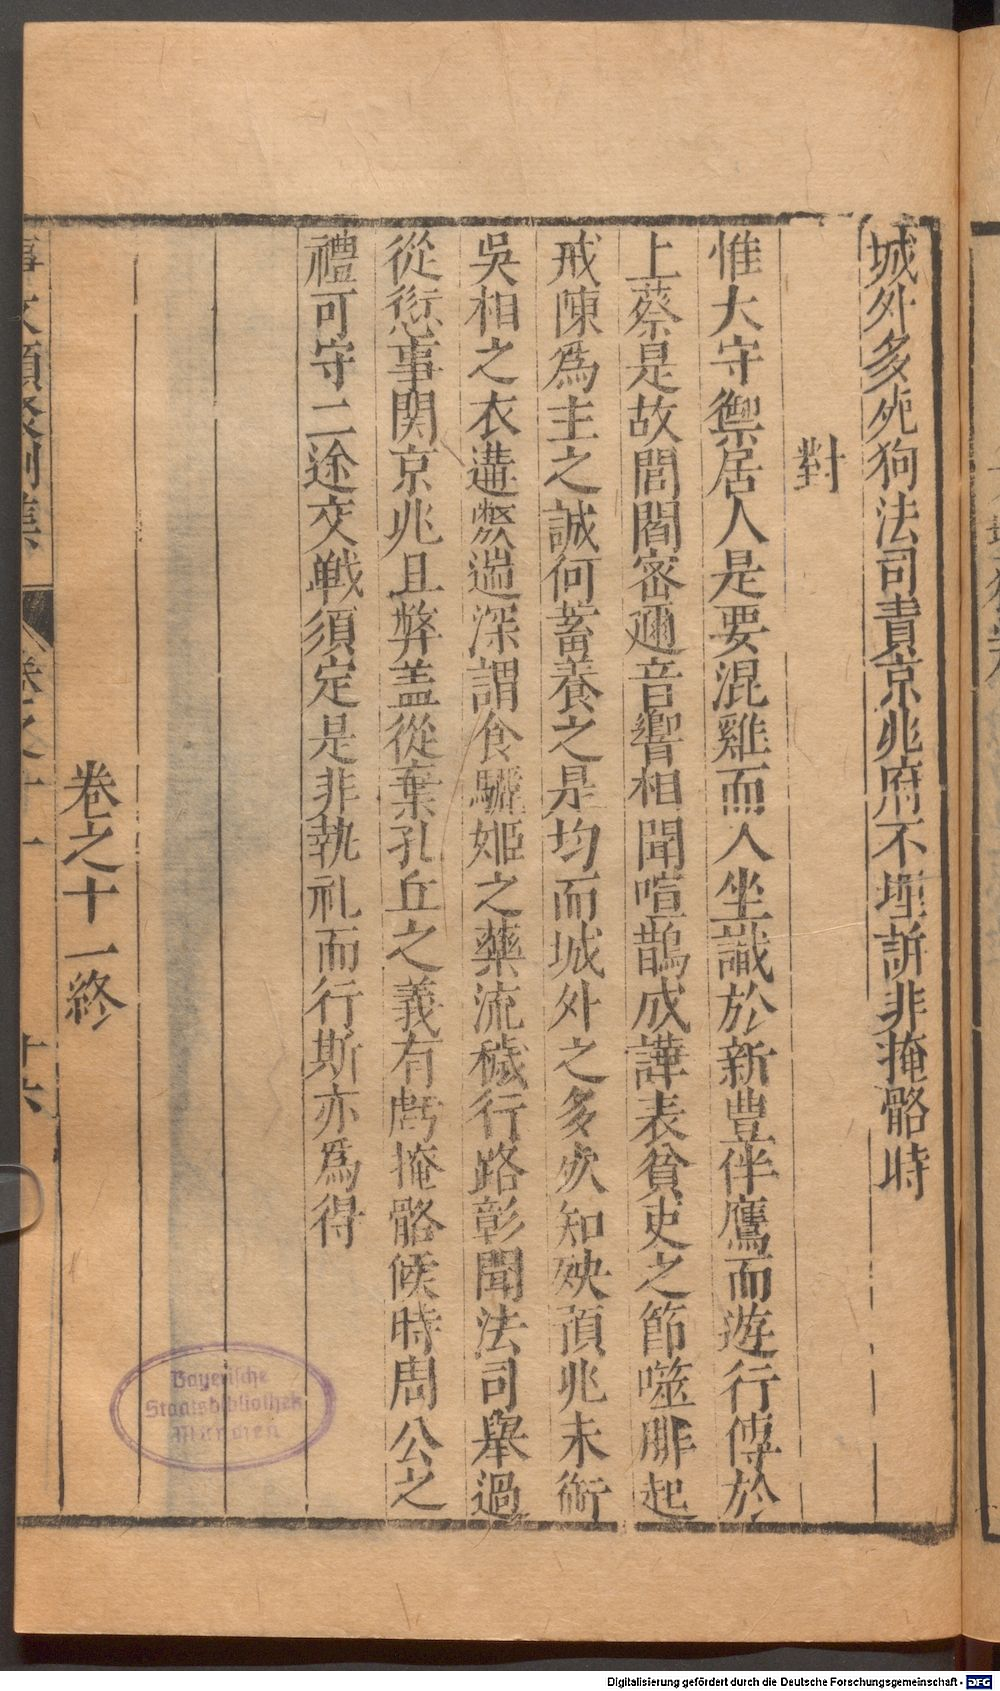 城外多死狗法司責京兆府不埋訴非掩骼時
對
惟犬守禦居人是要混雞而入坐識於新豊伴鷹而遊行傳於
上蔡是故閭閻密邇音響相聞喧鵲成譁表貧吏之節噬腓起
戒陳為主之誠何蓄養之是均而城外之多死知殃預兆未銜
吳相之衣遘斃遄深謂食驪姬之藥流穢行路彰聞法司舉過
從愆事関京兆且弊盖從棄孔丘之義有虧掩骼候時周公之
禮可守二途交戦須定是非執礼而行斯亦為得
卷之十一終
事文類聚別集
卷之十一
十六
Bayerische
Staatsbibliothek
München
Digitalisierung gefördert durch die Deutsche Forschungsgemeinschaft - DFG